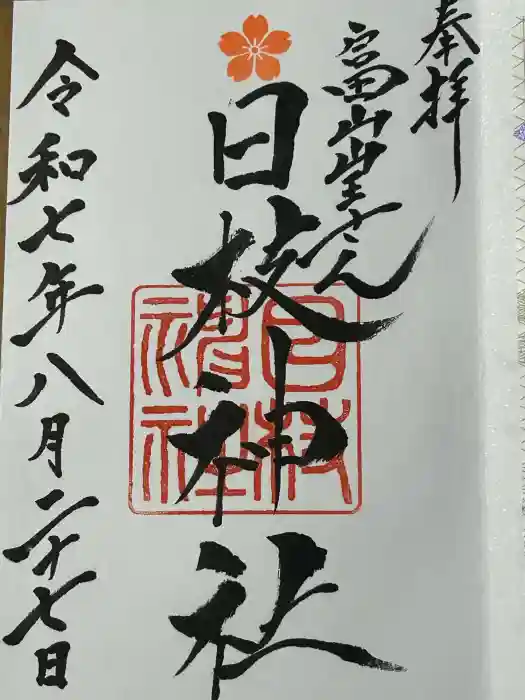 奉拝
富山山王さん
日枝神社
日枝
神社
令和七年八月二十七日